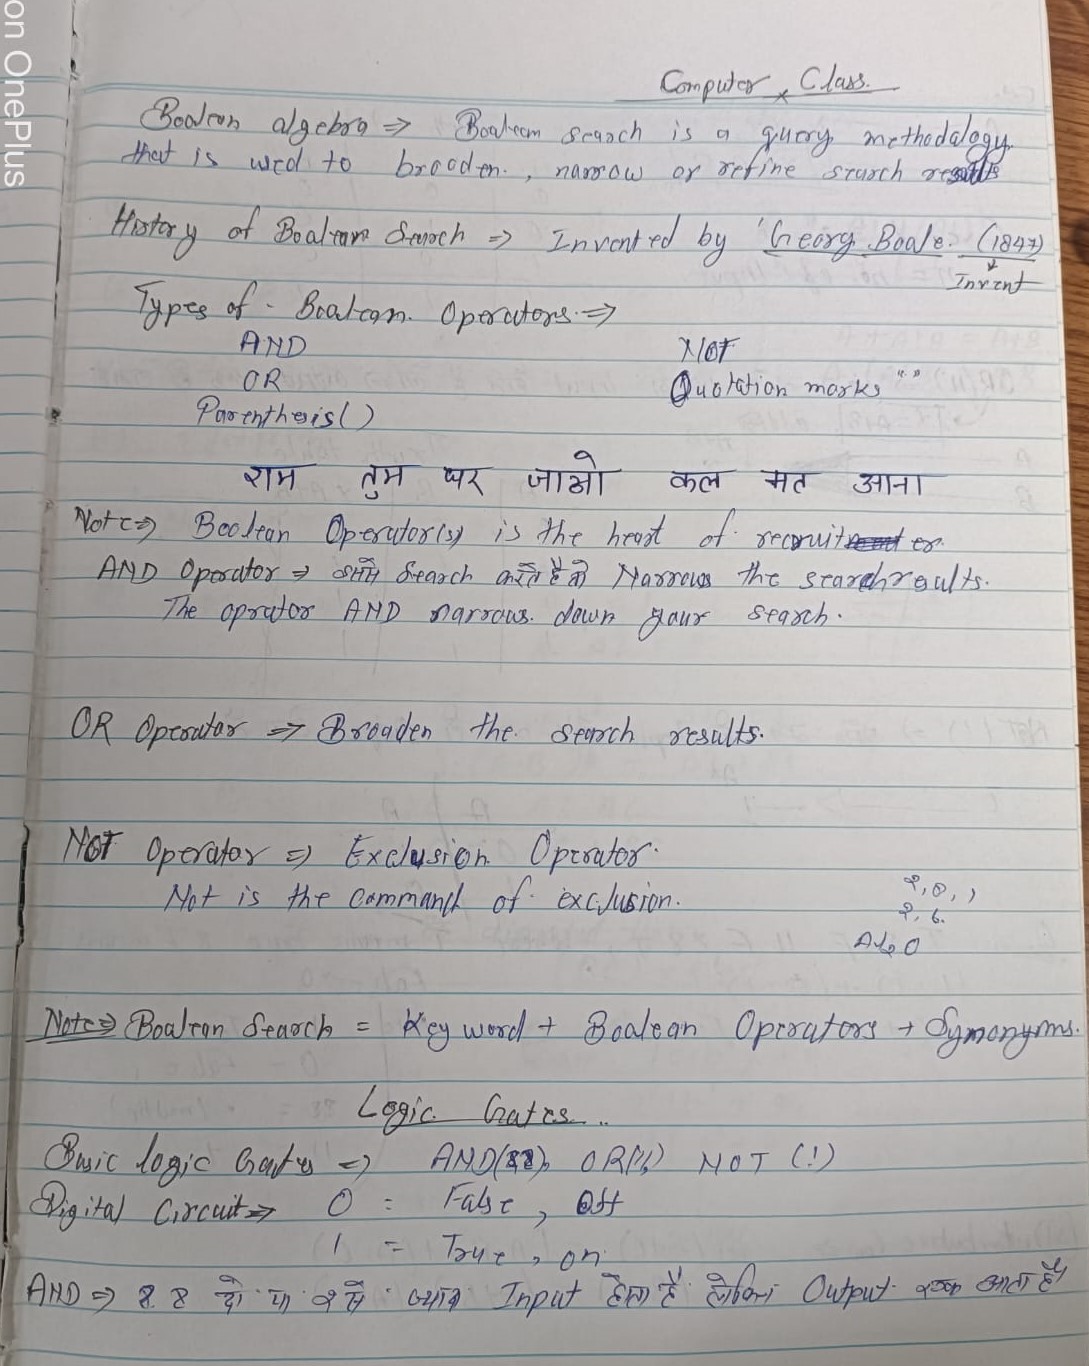 on OnePlus
Computer Class.
Boolean algebra ⇒ Boolean search is a query methodalogy
that is used to broaden, narrow or refine search results
History of Boolean Search ⇒ Invented by 'Georg Boole (1847)
Invent
Types of - Boolean Operators ⇒
AND NOT
OR Quotation marks " "
Parenthesis( )
राम तुम घर जाओ कल मत आना
Note ⇒ Boolean Operator(s) is the heart of recruiter.
AND Operator ⇒ Search करते है Narrows the search results.
The oprator AND narrows down your search.
OR Operator ⇒ Broaden the search results.
NOT Operator ⇒ Exclusion Operator.
Not is the command of exclusion.
Note ⇒ Boolean Search = Key word + Boolean Operators + Symonyms.
Logic Gates..
Basic logic Gates ⇒ AND(&&), OR(||) NOT (!)
Digital Circuit ⇒ 0 = False, Off
1 = True, on.
AND ⇒ && दो या Input देता है लेकिन Output एक आता है